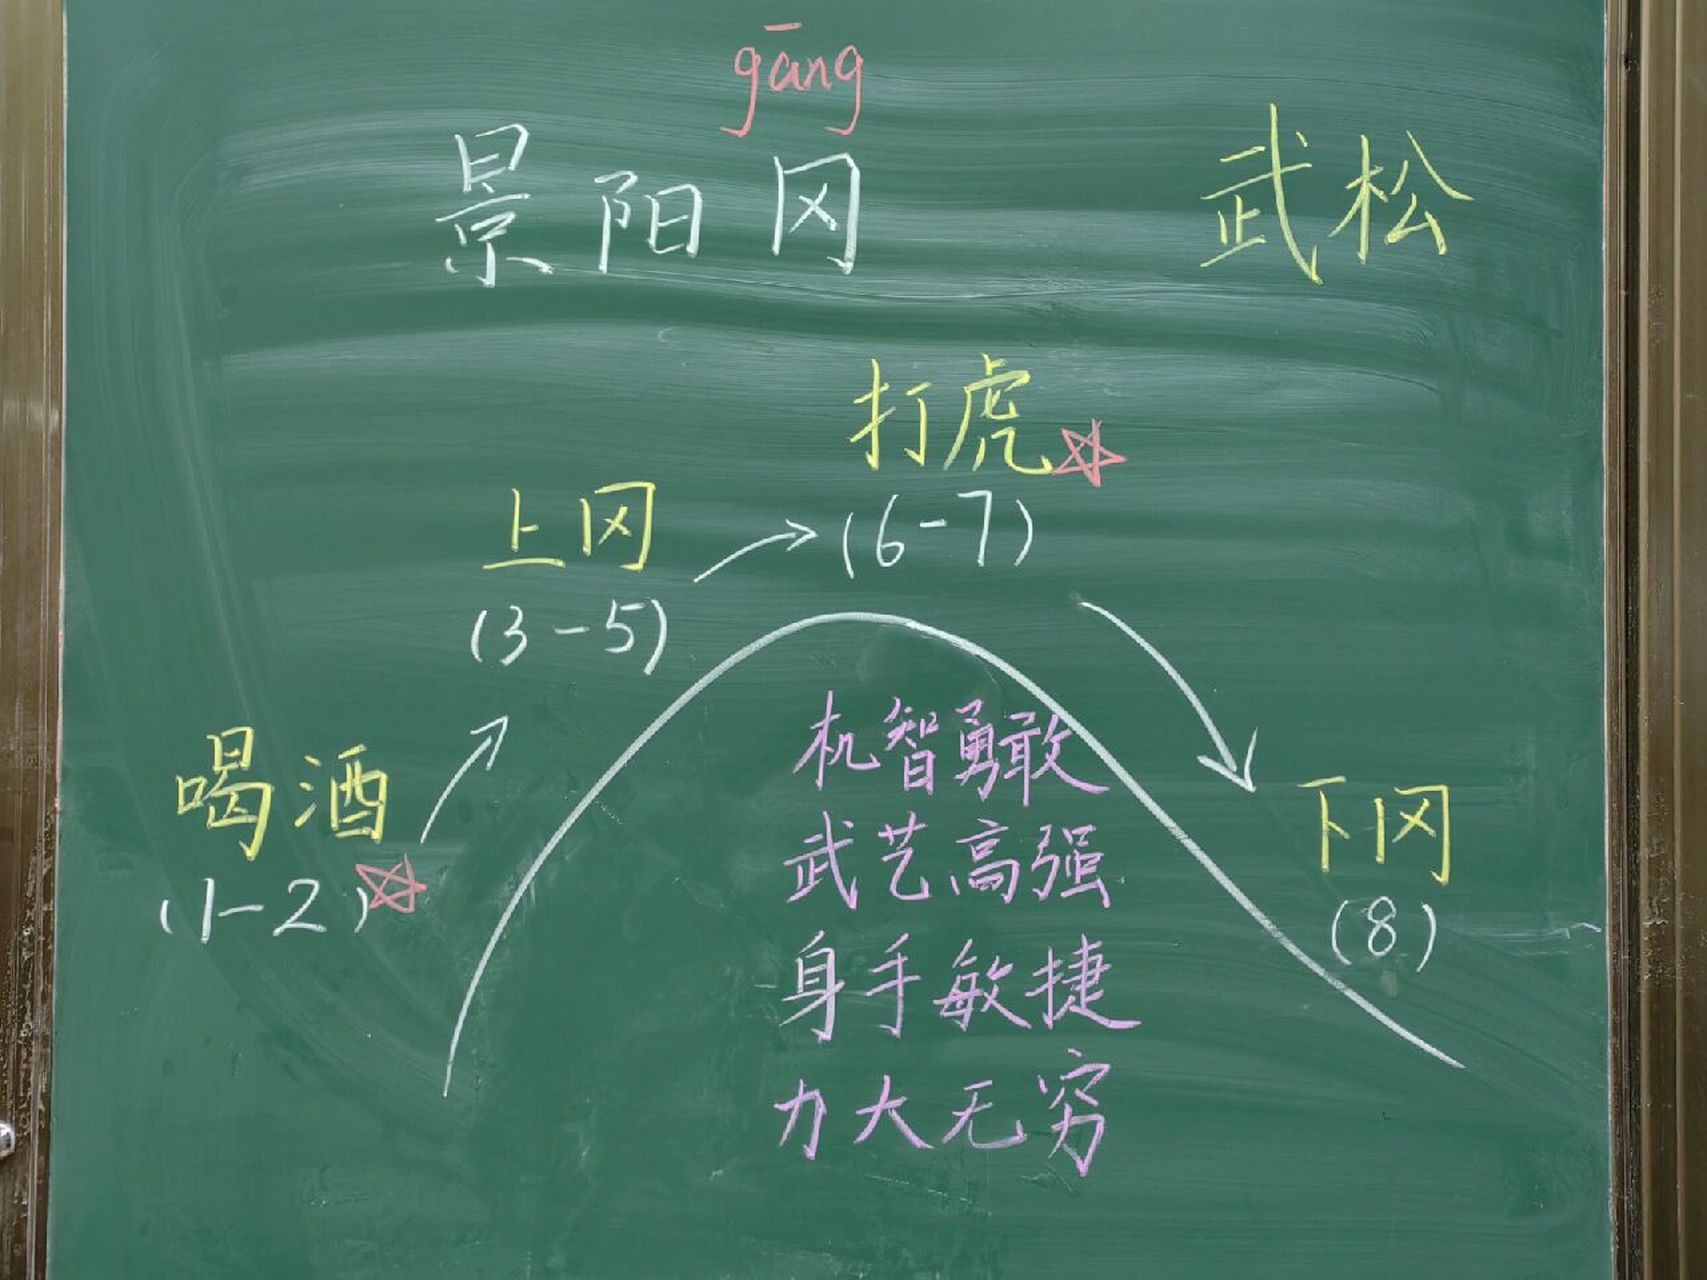 gāng
景阳冈 武松
打虎
(6-7)
上冈
(3-5)
喝酒
(1-2)
下冈
(8)
机智勇敢
武艺高强
身手敏捷
力大无穷